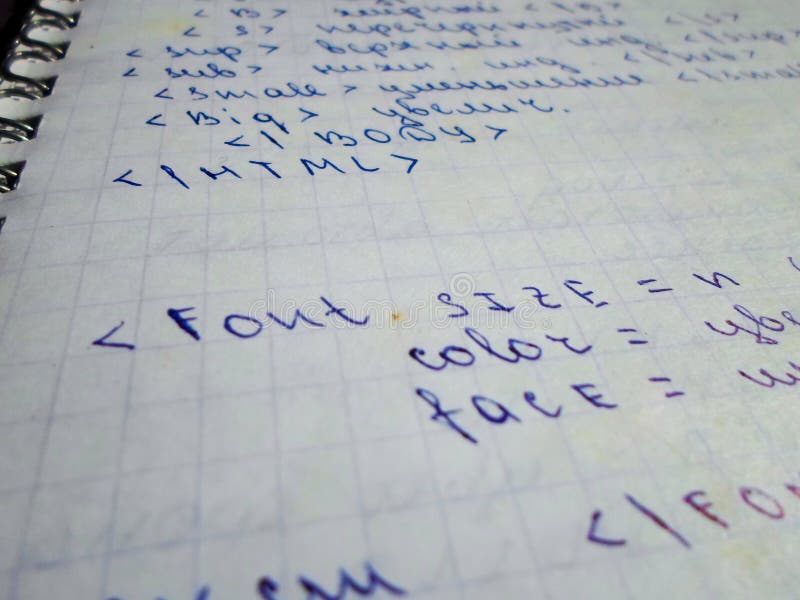 <B> жирный </B>
<S> перечеркнутый </S>
<sup> верхний инд. </sup>
<sub> нижн. инд. </sub>
<small> уменьшение </small
<Big> увелич.
</BODY>
</HTML>
<Font SIZE = n
color = цве
facE =
</FO